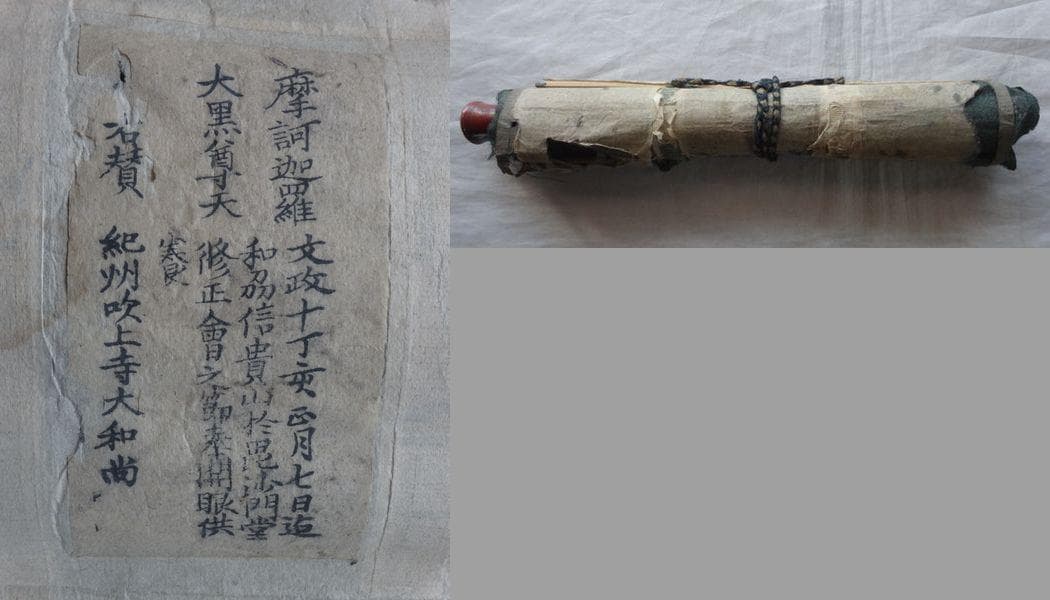 摩訶迦羅
大黒尊天
文政十丁亥正月七日迄
和刕信貴山於毘沙門堂
修正會之節奉開眼供
右賛 紀州吹上寺大和尚